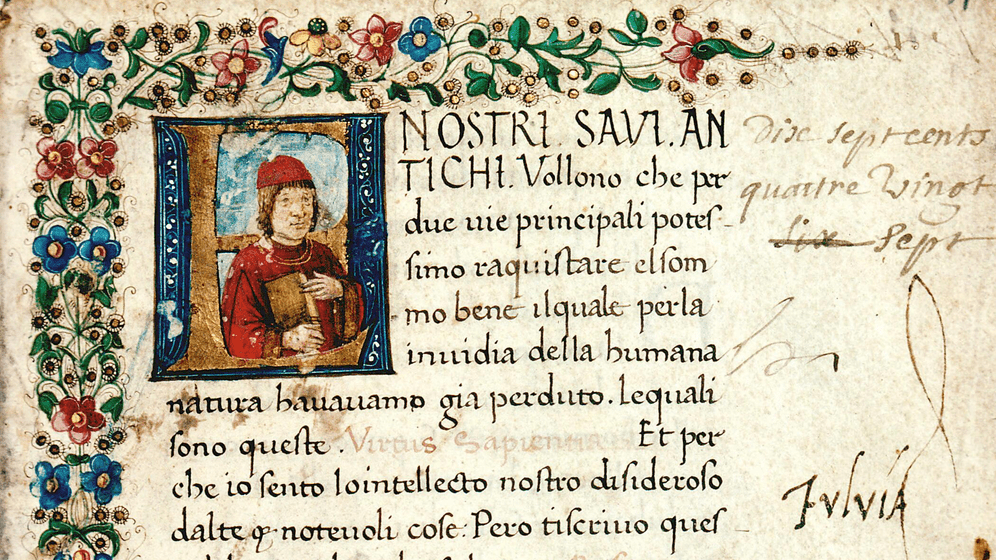 NOSTRI. SAVI. AN
TICHI. Vollono che per
due uie principali potes-
simo raquistare elsom
mo bene ilquale perla
inuidia della humana
natura hauauamo gia perduto. lequali
sono queste. Virtus Sapientia Et per
che io sento lointellecto nostro disideroso
dalte & noteuoli cose. Pero tiscriuo ques
dix septcents
quattre vingt
six sept
Fulvia